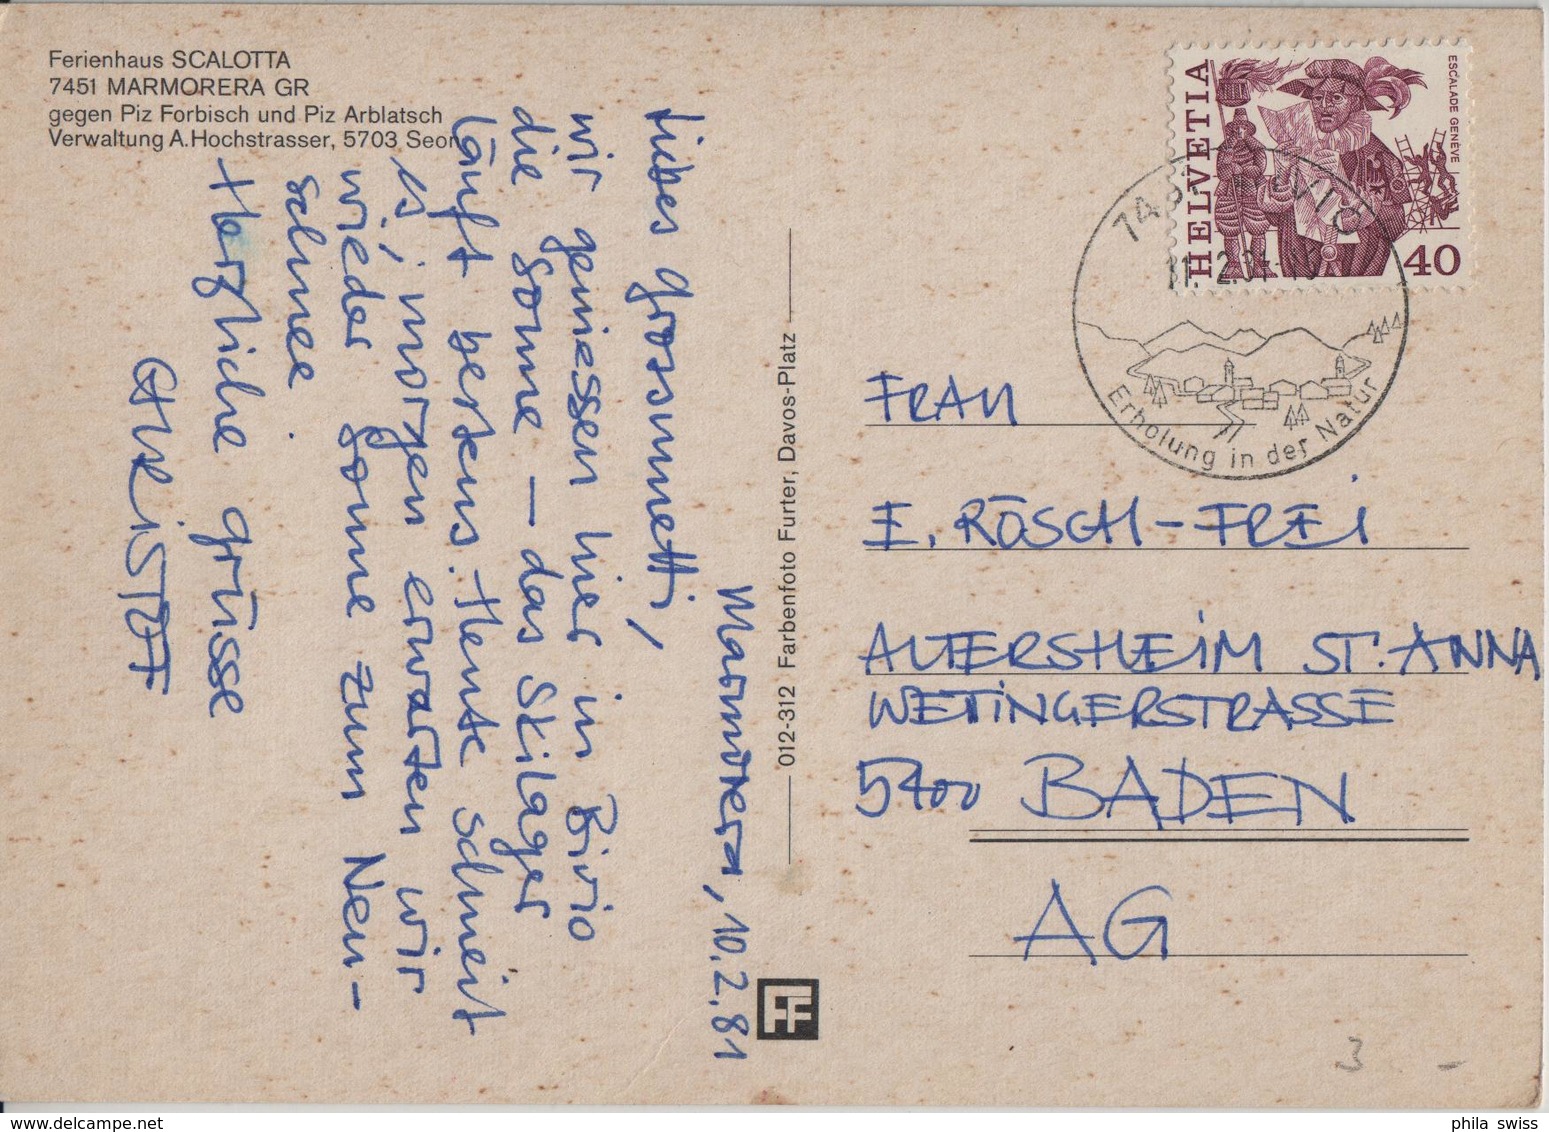 Ferienhaus SCALOTTA
7451 MARMORERA GR
gegen Piz Forbisch und Piz Arblatsch
Verwaltung A. Hochstrasser, 5703 Seon
Marmorera, 10.2.81
Liebes Grossmuetti,
wir geniessen hier in Bivio
die Sonne – das Skilager
läuft bestens. Heute schneit
es, morgen erwarten wir
wieder Sonne zum Neu-
schnee.
Herzliche Grüsse
CHRISTOF
012-312 Farbenfoto Furter, Davos-Platz
FF
HELVETIA
ESCALADE GENÈVE
40
BIVIO
Erholung in der Natur
FRAU
E. RÖSCH-FREI
ALTERSHEIM ST. ANNA
WETTINGERSTRASSE
5400 BADEN
AG
3 –
phila swiss